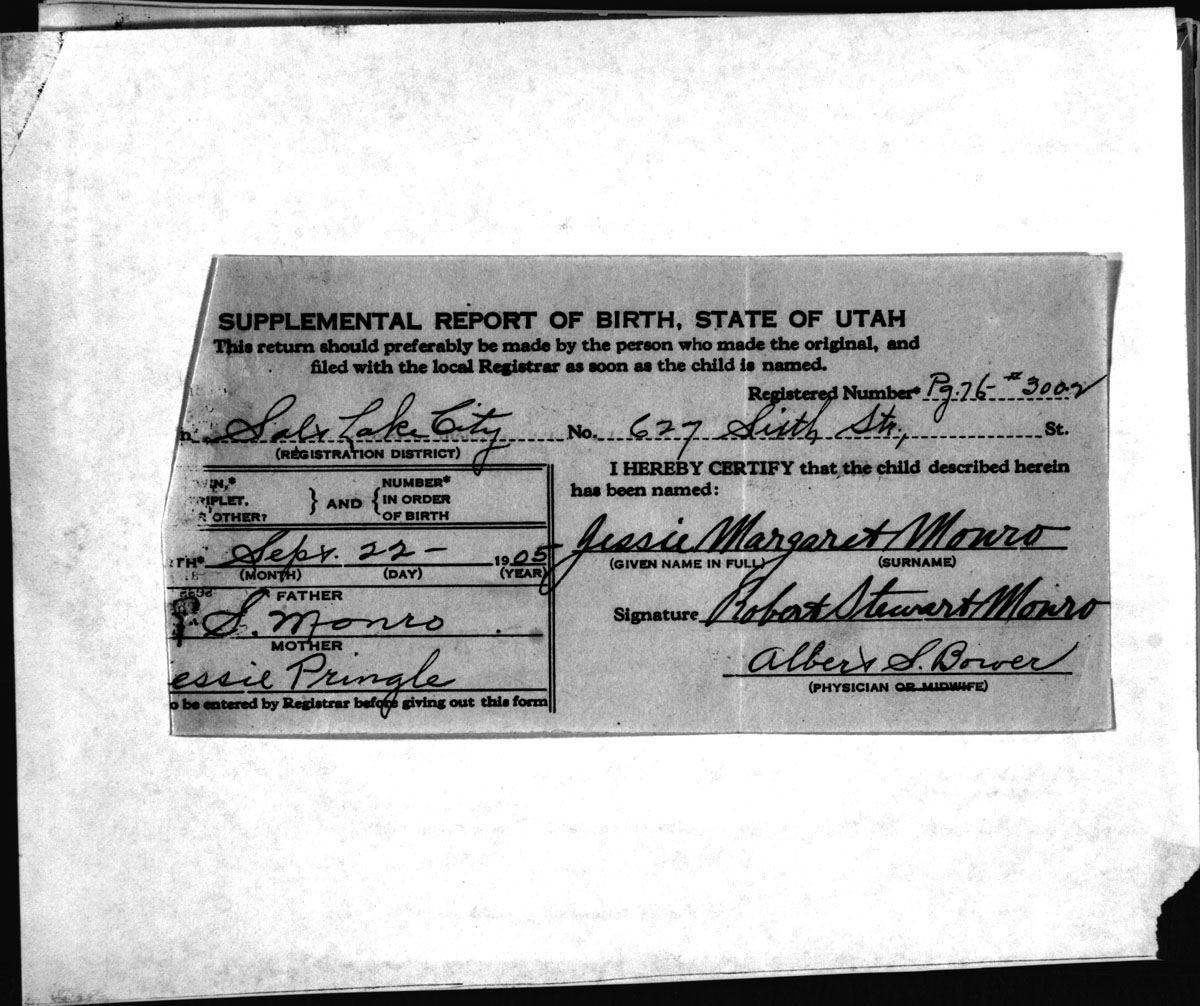 SUPPLEMENTAL REPORT OF BIRTH, STATE OF UTAH
This return should preferably be made by the person who made the original, and
filed with the local Registrar as soon as the child is named.
Registered Number* Pg. 76 - #3002
Salt Lake City No. 627 Sixth Str., St.
(REGISTRATION DISTRICT)
I HEREBY CERTIFY that the child described herein
has been named:
WIN,* RIPLET, R OTHER? } AND { NUMBER* IN ORDER OF BIRTH
Jessie Margaret Monro
(GIVEN NAME IN FULL) (SURNAME)
RTH* Sept. 22 - 1905
(MONTH) (DAY) (YEAR)
FATHER
S. Monro
Signature Robert Stewart Monro
MOTHER
essie Pringle
Albert S. Bower
(PHYSICIAN OR MIDWIFE)
o be entered by Registrar before giving out this form